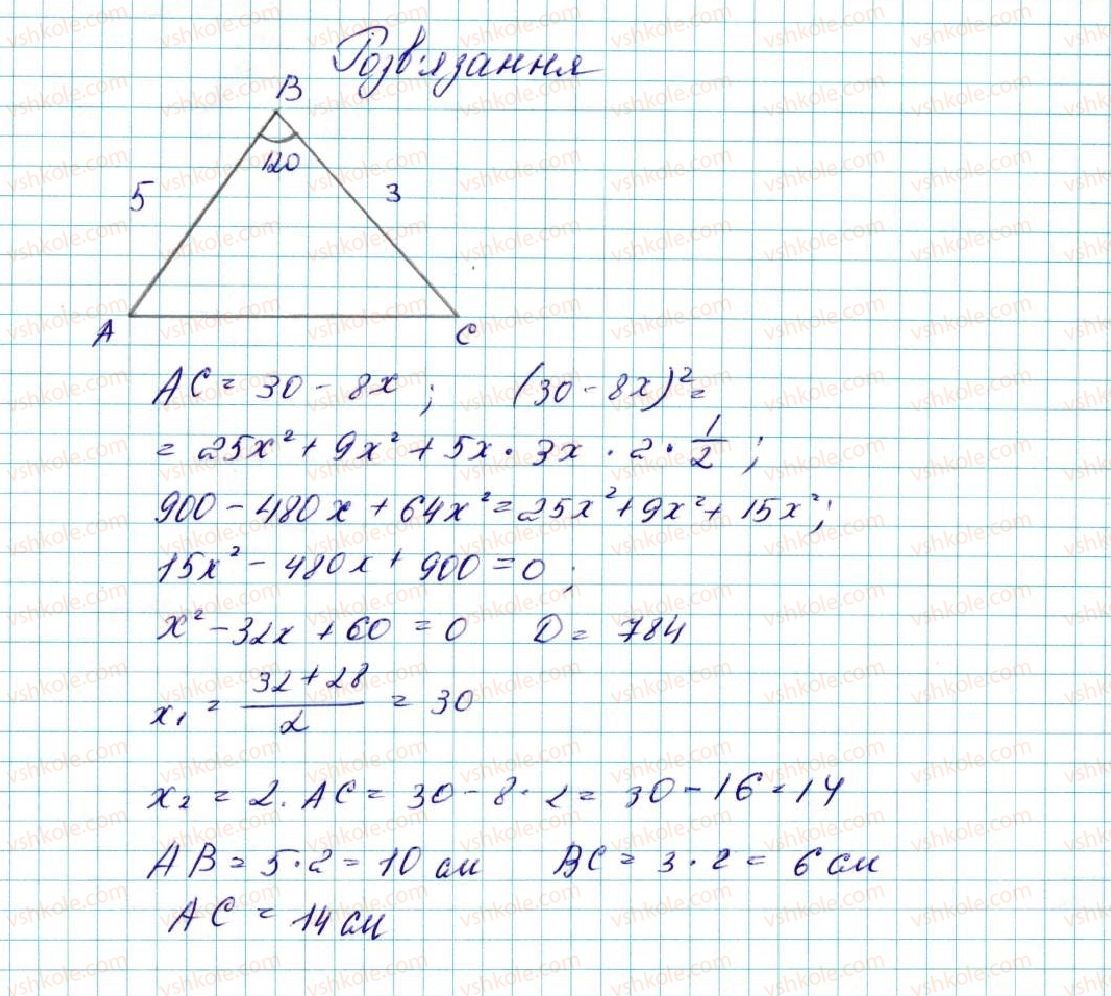 Розв'язання
B
120
5 3
A C
AC = 30 - 8x ; (30 - 8x)² =
= 25x² + 9x² + 5x · 3x · 2 · 1/2 ;
900 - 480x + 64x² = 25x² + 9x² + 15x²;
15x² - 480x + 900 = 0 ;
x² - 32x + 60 = 0 D = 784
x₁ = (32 + 28)/2 = 30
x₂ = 2. AC = 30 - 8 · 2 = 30 - 16 = 14
AB = 5 · 2 = 10 см BC = 3 · 2 = 6 см
AC = 14 см